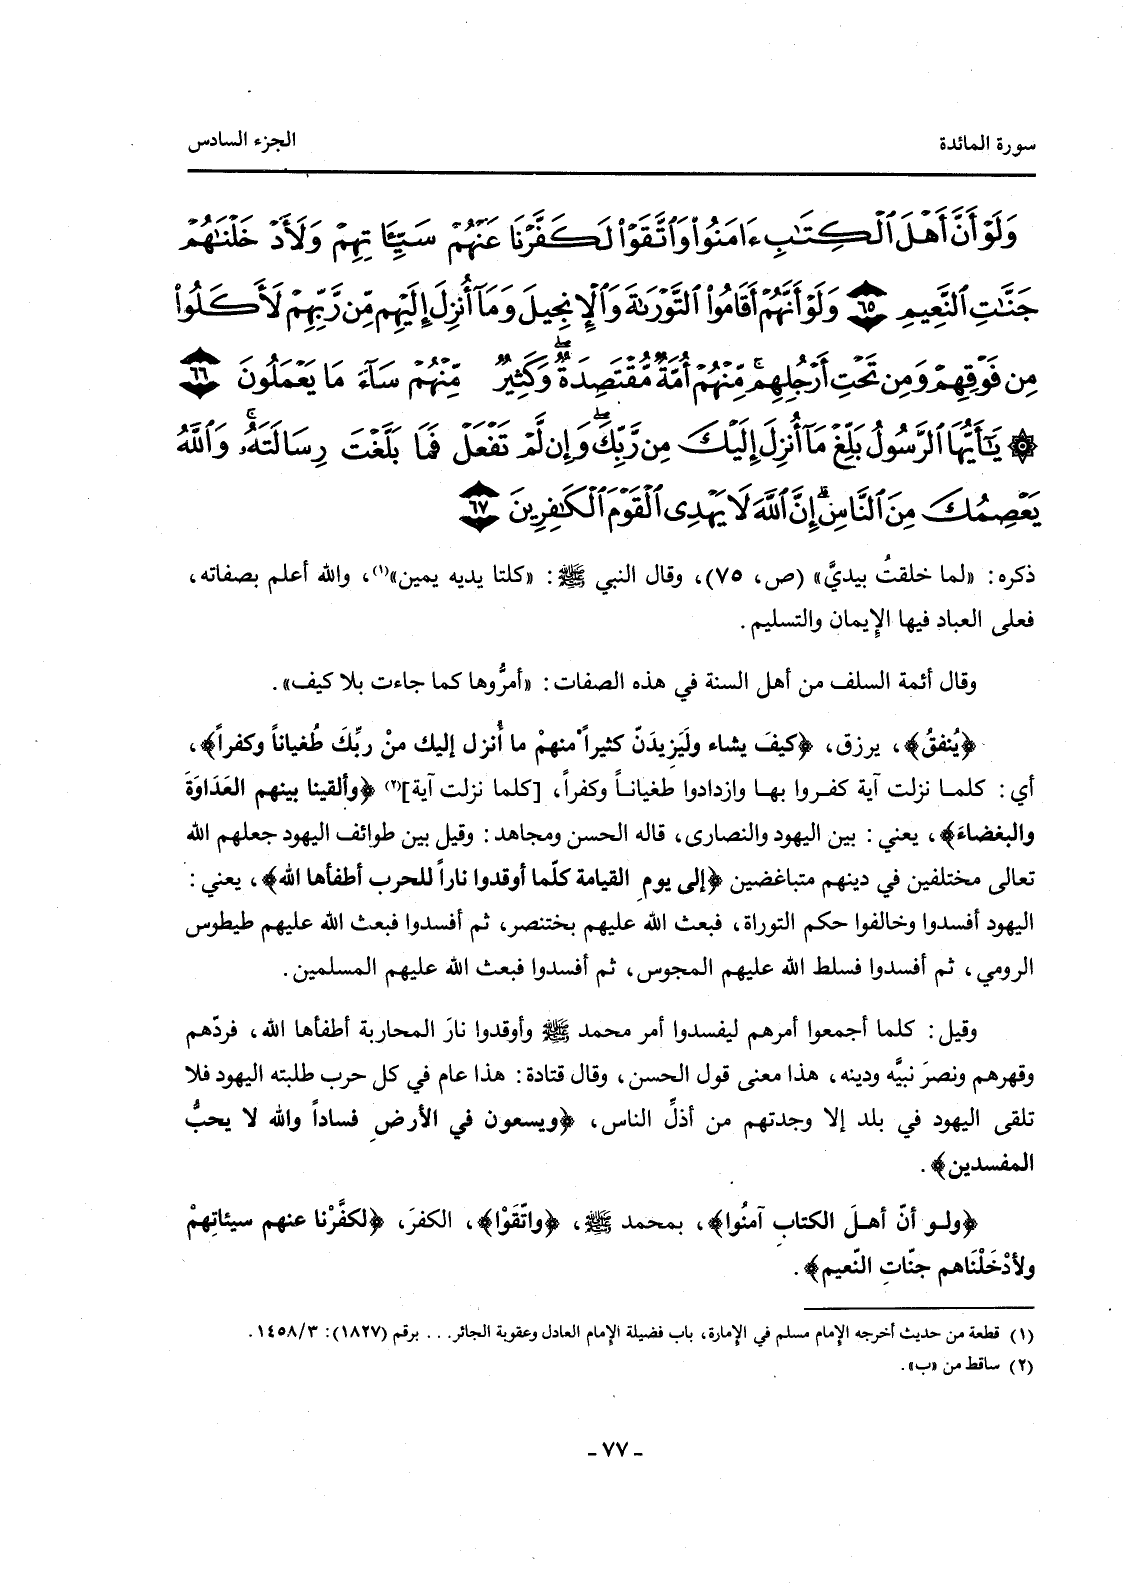 سورة المائدة الجزء السادس
وَلَوْ أَنَّ أَهْلَ ٱلْكِتَٰبِ ءَامَنُوا۟ وَٱتَّقَوْا۟ لَكَفَّرْنَا عَنْهُمْ سَيِّـَٔاتِهِمْ وَلَأَدْخَلْنَٰهُمْ
جَنَّٰتِ ٱلنَّعِيمِ ٦٥ وَلَوْ أَنَّهُمْ أَقَامُوا۟ ٱلتَّوْرَىٰةَ وَٱلْإِنجِيلَ وَمَآ أُنزِلَ إِلَيْهِم مِّن رَّبِّهِمْ لَأَكَلُوا۟
مِن فَوْقِهِمْ وَمِن تَحْتِ أَرْجُلِهِم ۚ مِّنْهُمْ أُمَّةٌ مُّقْتَصِدَةٌ ۖ وَكَثِيرٌ مِّنْهُمْ سَآءَ مَا يَعْمَلُونَ ٦٦
۞ يَٰٓأَيُّهَا ٱلرَّسُولُ بَلِّغْ مَآ أُنزِلَ إِلَيْكَ مِن رَّبِّكَ ۖ وَإِن لَّمْ تَفْعَلْ فَمَا بَلَّغْتَ رِسَالَتَهُۥ ۚ وَٱللَّهُ
يَعْصِمُكَ مِنَ ٱلنَّاسِ ۗ إِنَّ ٱللَّهَ لَا يَهْدِى ٱلْقَوْمَ ٱلْكَٰفِرِينَ ٦٧
ذكره: «لما خلقتُ بيديَّ» (ص، ٧٥)، وقال النبي ﷺ: «كلتا يديه يمين»(١)، والله أعلم بصفاته،
فعلى العباد فيها الإيمان والتسليم.
وقال أئمة السلف من أهل السنة في هذه الصفات: «أمرُّوها كما جاءت بلا كيف».
﴿يُنفقُ﴾، يرزق، ﴿كيفَ يشاء ولَيَزِيدَنّ كثيراً منهمْ ما أُنزل إليك منْ ربِّكَ طُغياناً وكفراً﴾،
أي: كلما نزلت آية كفروا بها وازدادوا طغياناً وكفراً، [كلما نزلت آية](٢) ﴿وألقينا بينهم العَدَاوَةَ
والبغضاءَ﴾، يعني: بين اليهود والنصارى، قاله الحسن ومجاهد: وقيل بين طوائف اليهود جعلهم الله
تعالى مختلفين في دينهم متباغضين ﴿إلى يومِ القيامة كلّما أوقدوا ناراً للحرب أطفأها الله﴾، يعني:
اليهود أفسدوا وخالفوا حكم التوراة، فبعث الله عليهم بختنصر، ثم أفسدوا فبعث الله عليهم طيطوس
الرومي، ثم أفسدوا فسلط الله عليهم المجوس، ثم أفسدوا فبعث الله عليهم المسلمين.
وقيل: كلما أجمعوا أمرهم ليفسدوا أمر محمد ﷺ وأوقدوا نارَ المحاربة أطفأها الله، فردّهم
وقهرهم ونصرَ نبيَّه ودينه، هذا معنى قول الحسن، وقال قتادة: هذا عام في كل حرب طلبته اليهود فلا
تلقى اليهود في بلد إلا وجدتهم من أذلِّ الناس، ﴿ويسعون في الأرضِ فساداً والله لا يحبُّ
المفسدين﴾.
﴿ولو أنّ أهلَ الكتابِ آمنُوا﴾، بمحمد ﷺ، ﴿واتّقَوْا﴾، الكفرَ، ﴿لكفَّرْنا عنهم سيئاتِهمْ
ولأدْخَلْنَاهم جنّاتِ النّعيم﴾.
(١) قطعة من حديث أخرجه الإمام مسلم في الإمارة، باب فضيلة الإمام العادل وعقوبة الجائر... برقم (١٨٢٧): ١٤٥٨/٣.
(٢) ساقط من «ب».
ـ ٧٧ ـ